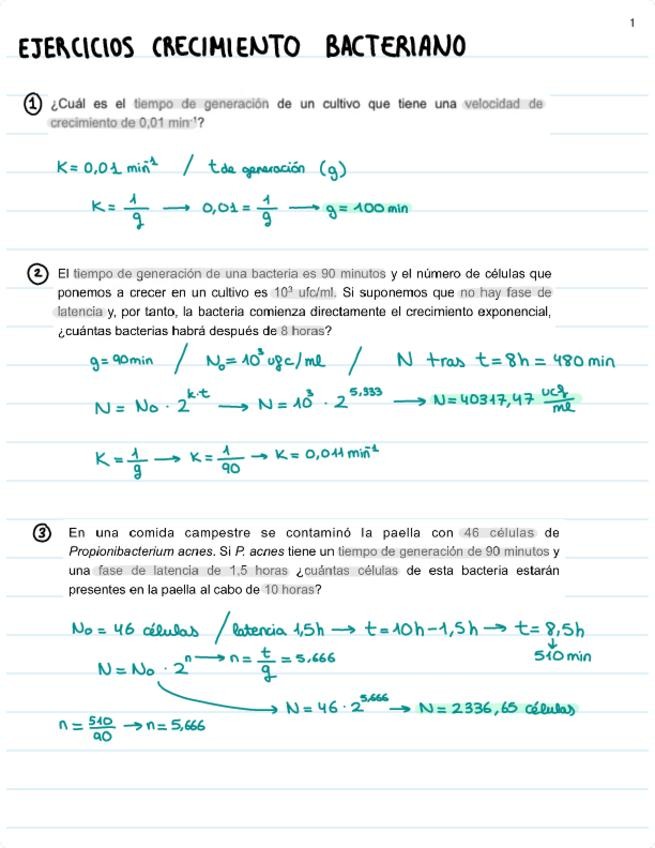 1
EJERCICIOS CRECIMIENTO BACTERIANO
① ¿Cuál es el tiempo de generación de un cultivo que tiene una velocidad de
crecimiento de 0,01 min⁻¹?
K = 0,01 min⁻¹ / t de generación (g)
K = 1/g → 0,01 = 1/g → g = 100 min
② El tiempo de generación de una bacteria es 90 minutos y el número de células que
ponemos a crecer en un cultivo es 10³ ufc/ml. Si suponemos que no hay fase de
latencia y, por tanto, la bacteria comienza directamente el crecimiento exponencial,
¿cuántas bacterias habrá después de 8 horas?
g = 90 min / N₀ = 10³ ugc/ml / N tras t = 8h = 480 min
N = N₀ · 2^k·t → N = 10³ · 2^5,333 → N = 40317,47 ucg/ml
K = 1/g → K = 1/90 → K = 0,011 min⁻¹
③ En una comida campestre se contaminó la paella con 46 células de
Propionibacterium acnes. Si P. acnes tiene un tiempo de generación de 90 minutos y
una fase de latencia de 1,5 horas ¿cuántas células de esta bacteria estarán
presentes en la paella al cabo de 10 horas?
N₀ = 46 células / latencia 1,5h → t = 10h - 1,5h → t = 8,5h
↓
510 min
N = N₀ · 2^n → n = t/g = 5,666
→ N = 46 · 2^5,666 → N = 2336,65 células
n = 510/90 → n = 5,666